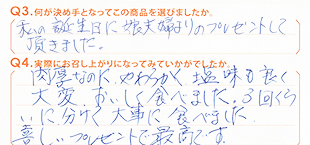 Q3.何が決め手となってこの商品を選びましたか。
私の誕生日に娘夫婦よりのプレゼントして
頂きました。
Q4.実際にお召し上がりになってみていかがでしたか。
肉厚なのに、やわらかく塩味も良く
大変おいしく食べました。3回くら
いに分けて大事に食べました
喜しいプレゼントで最高です。